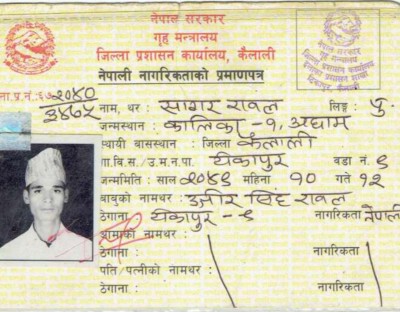 नेपाल सरकार
गृह मन्त्रालय
जिल्ला प्रशासन कार्यालय, कैलाली
नेपाली नागरिकताको प्रमाणपत्र
ना.प्र.नं.:
नाम, थर : सागर रावल लिङ्ग पु.
जन्मस्थान : कालिका -१, अछाम
स्थायी बासस्थान : जिल्ला कैलाली
गा.बि.स./उ.म.न.पा. टिकापुर वडा नं. ९
जन्ममिति : साल २०४९ महिना १० गते १२
बाबुको नामथर : सिंह रावल
ठेगाना : टिकापुर - ९ नागरिकता नेपाली
आमाको नामथर : नागरिकता
ठेगाना :
पति/पत्नीको नामथर : नागरिकता
ठेगाना :